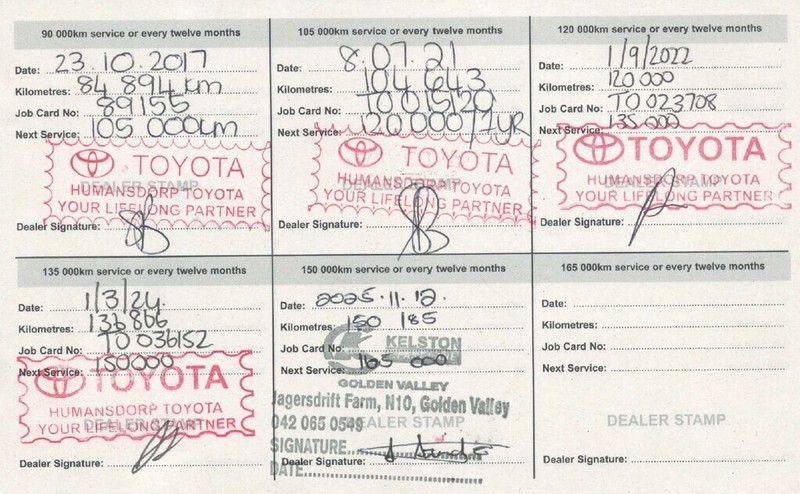 90 000km service or every twelve months
Date: 23.10.2017
Kilometres: 84 894 km
Job Card No: 89155
Next Service: 105 000km
TOYOTA
DEALER STAMP
HUMANSDORP TOYOTA
YOUR LIFELONG PARTNER
Dealer Signature:
105 000km service or every twelve months
Date: 8.07.21
Kilometres: 104 643
Job Card No: TO 015120
Next Service: 120 000/1YR
TOYOTA
DEALER STAMP
HUMANSDORP TOYOTA
YOUR LIFELONG PARTNER
Dealer Signature:
120 000km service or every twelve months
Date: 1/9/2022
Kilometres: 120 000
Job Card No: TO 023708
Next Service: 135 000
TOYOTA
DEALER STAMP
HUMANSDORP TOYOTA
YOUR LIFELONG PARTNER
Dealer Signature:
135 000km service or every twelve months
Date: 1/3/24.
Kilometres: 136 866
Job Card No: TO 036152
Next Service: 150000
TOYOTA
HUMANSDORP TOYOTA
DEALER STAMP
YOUR LIFELONG PARTNER
Dealer Signature:
150 000km service or every twelve months
Date: 2025.11.12.
Kilometres: 150 185
Job Card No:
KELSTON
Next Service: 165 000
GOLDEN VALLEY
Jagersdrift Farm, N10, Golden Valley
042 065 0549
DEALER STAMP
SIGNATURE
Dealer Signature:
DATE
165 000km service or every twelve months
Date:
Kilometres:
Job Card No:
Next Service:
DEALER STAMP
Dealer Signature: